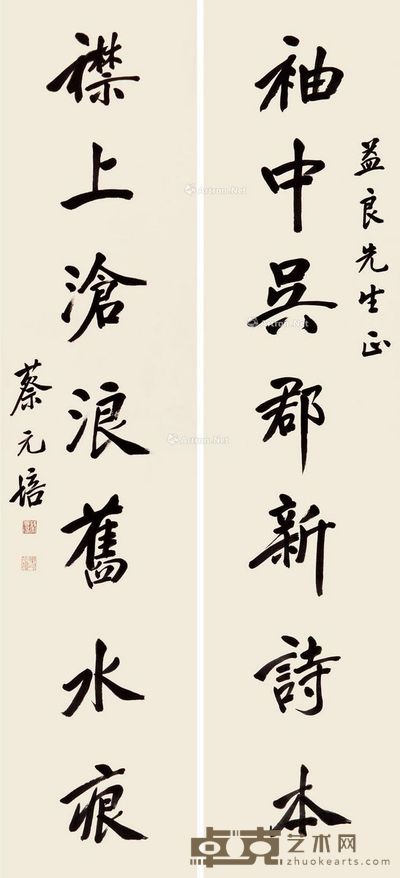 益良先生正
袖中吳郡新詩本
襟上滄浪舊水痕
蔡元培
Artron.Net
Artron.Net
Artron.Net
卓克艺术网
zhuokearts.com